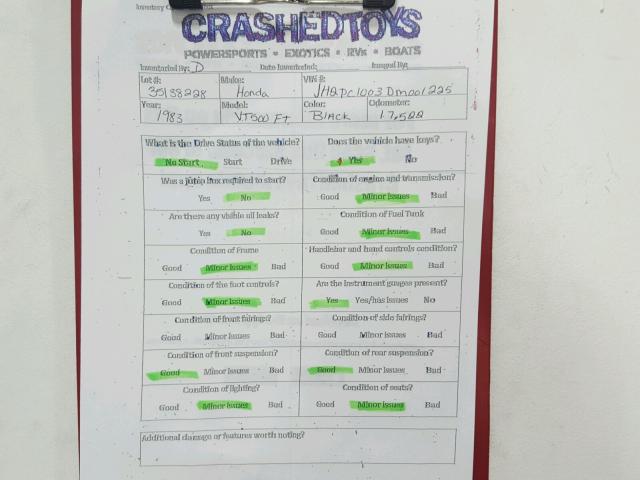 CRASHEDTOYS
POWERSPORTS • EXOTICS • RVs • BOATS
Inventoried By: D Date Inventoried: Imaged By:
Lot #: Make: VIN #:
35138228 Honda
Year: Model: Color: Odometer:
1983 VT500 FT Black 17,522
What is the Drive Status of the vehicle? Does the vehicle have keys?
No Start Start Drive Yes No
Was a jump box required to start? Condition of engine and transmission?
Yes No Good Minor Issues Bad
Are there any visible oil leaks? Condition of Fuel Tank
Yes No Good Minor Issues Bad
Condition of Frame Handlebar and hand controls condition?
Good Minor Issues Bad Good Minor Issues Bad
Condition of the foot controls? Are the instrument gauges present?
Good Minor Issues Bad Yes Yes/has Issues No
Condition of front fairings? Condition of side fairings?
Good Minor Issues Bad Good Minor Issues Bad
Condition of front suspension? Condition of rear suspension?
Good Minor Issues Bad Good Minor Issues Bad
Condition of lighting? Condition of seats?
Good Minor Issues Bad Good Minor Issues Bad
Additional damage or features worth noting?